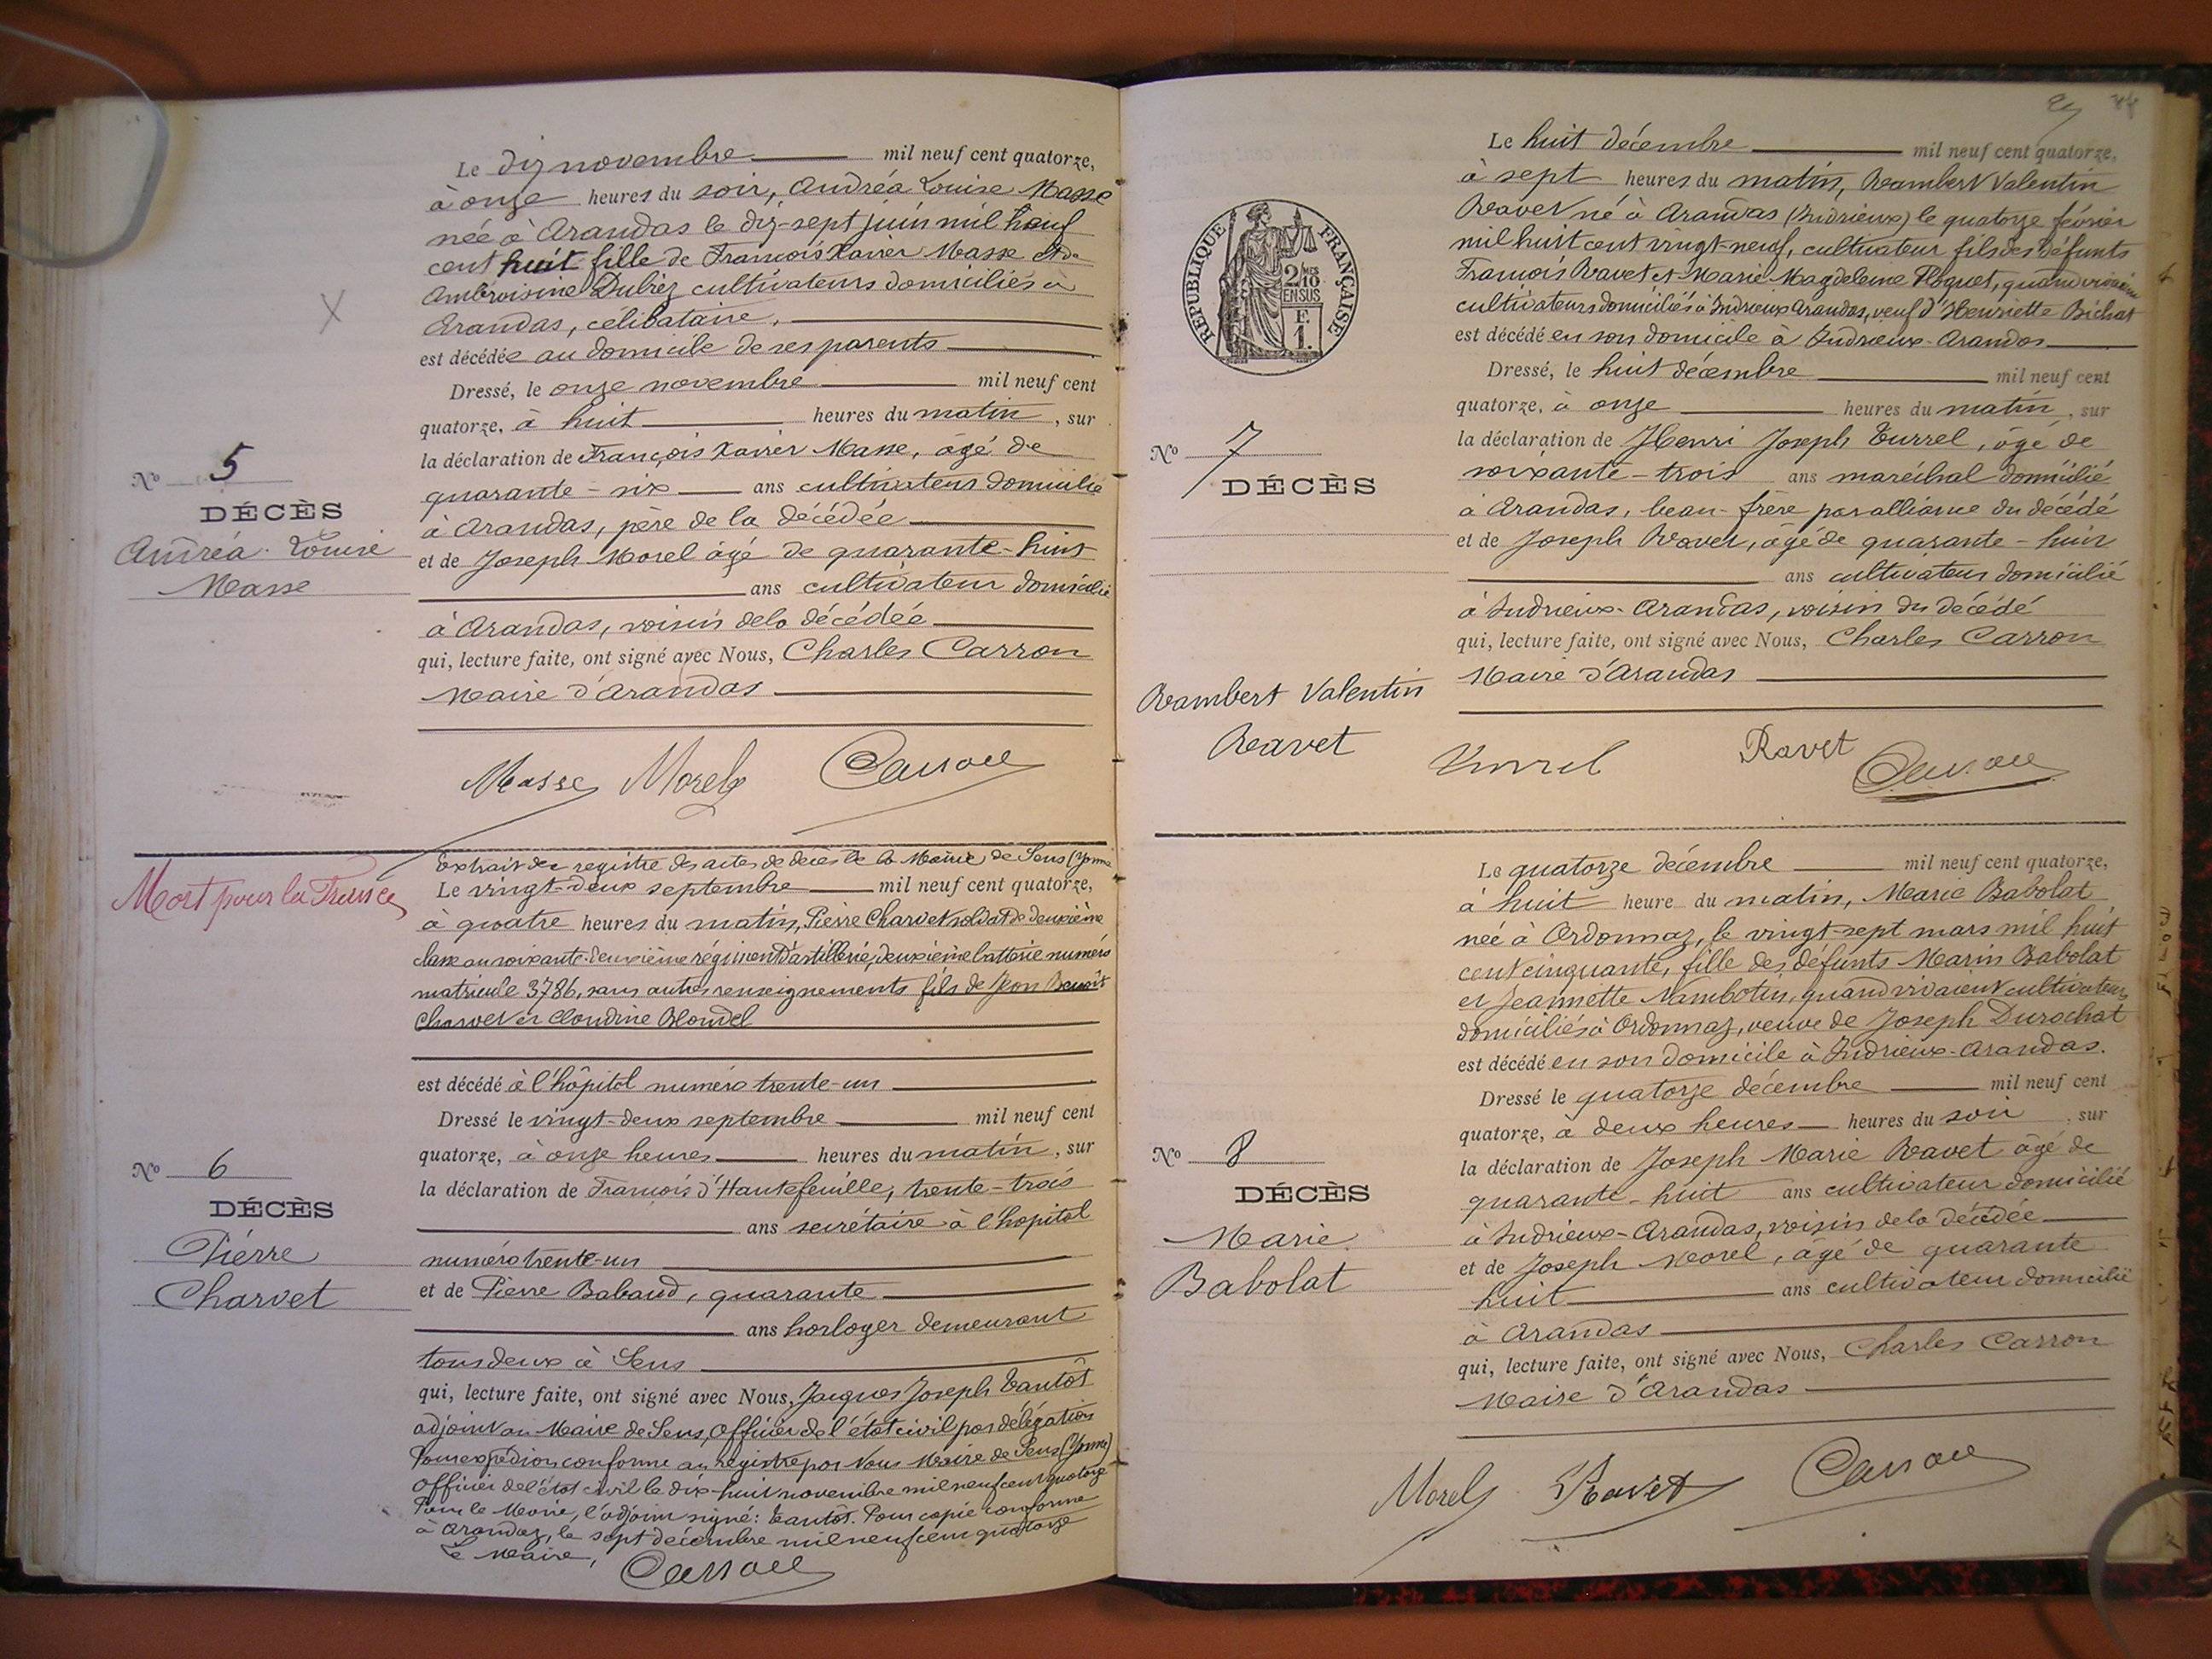 Le dix novembre mil neuf cent quatorze,
à onze heures du soir, Andréa Louise Masse
née à Arandas le dix-sept juin mil neuf
cent huit fille de François Xavier Masse et de
Ambroisine Dubiez cultivateurs domiciliés à
Arandas, célibataire,
est décédée au domicile de ses parents
Dressé, le onze novembre mil neuf cent
quatorze, à huit heures du matin, sur
la déclaration de François Xavier Masse, âgé de
quarante-six ans cultivateur domicilié
à Arandas, père de la décédée
et de Joseph Morel âgé de quarante-huit
ans cultivateur domicilié
à Arandas, voisin de la décédée
qui, lecture faite, ont signé avec Nous, Charles Carron
Maire d'Arandas
Masse Morel Carron
X
No 5
DÉCÈS
Andréa Louise
Masse
Mort pour la France
Extrait du registre des actes de décès de la Mairie de Sens (Yonne
Le vingt-deux septembre mil neuf cent quatorze,
à quatre heures du matin, Pierre Charvet soldat de deuxième
classe au soixante-deuxième régiment d'artillerie, deuxième batterie numéro
matricule 3786, sans autres renseignements fils de Jean Benoît
Charvet et Claudine Blondel
est décédé à l'hôpital numéro trente-un
Dressé le vingt-deux septembre mil neuf cent
quatorze, à onze heures heures du matin, sur
la déclaration de François d'Hautefeuille, trente-trois
ans secrétaire à l'hopital
numéro trente-un
et de Pierre Babaud, quarante
ans horloger demeurant
tous deux à Sens
qui, lecture faite, ont signé avec Nous, Jacques Joseph Tantôt
adjoint au Maire de Sens, Officier de l'état civil par délégation
Pour expédition conforme au registre par Nous Maire de Sens (Yonne)
Officier de l'état civil le dix-huit novembre mil neuf cent quatorze
Pour le Maire, l'adjoint signé: Tantôt. Pour copie conforme
à Arandas, le sept décembre mil neuf cent quatorze
Le Maire, Carron
No 6
DÉCÈS
Pierre
Charvet
RÉPUBLIQUE FRANÇAISE
2/10 MES
EN SUS
F.
1.
Le huit décembre mil neuf cent quatorze,
à sept heures du matin, Rambert Valentin
Ravet né à Arandas (Indrieux) le quatorze février
mil huit cent vingt-neuf, cultivateur fils des défunts
François Ravet et Marie Magdeleine Ploquet, quand vivaient
cultivateurs domiciliés à Indrieux Arandas, veuf d'Henriette Bichat
est décédé en son domicile à Indrieux-Arandas
Dressé, le huit décembre mil neuf cent
quatorze, à onze heures du matin, sur
la déclaration de Henri Joseph Turrel, âgé de
soixante-trois ans maréchal domicilié
à Arandas, beau-frère par alliance du décédé
et de Joseph Ravet, âgé de quarante-huit
ans cultivateur domicilié
à Indrieux-Arandas, voisin du décédé
qui, lecture faite, ont signé avec Nous, Charles Carron
Maire d'Arandas
Turrel Ravet Carron
No 7
DÉCÈS
Rambert Valentin
Ravet
Le quatorze décembre mil neuf cent quatorze,
à huit heure du matin, Marie Babolat
née à Ordonnaz, le vingt-sept mars mil huit
cent cinquante, fille des défunts Marin Babolat
et Jeannette Nambotin, quand vivaient cultivateurs
domiciliés à Ordonnaz, veuve de Joseph Durochat
est décédé en son domicile à Indrieux-Arandas.
Dressé le quatorze décembre mil neuf cent
quatorze, à deux heures heures du soir, sur
la déclaration de Joseph Marie Ravet âgé de
quarante-huit ans cultivateur domicilié
à Indrieux-Arandas, voisin de la décédée
et de Joseph Morel, âgé de quarante
huit ans cultivateur domicilié
à Arandas
qui, lecture faite, ont signé avec Nous, Charles Carron
Maire d'Arandas
Morel Ravet Carron
No 8
DÉCÈS
Marie
Babolat